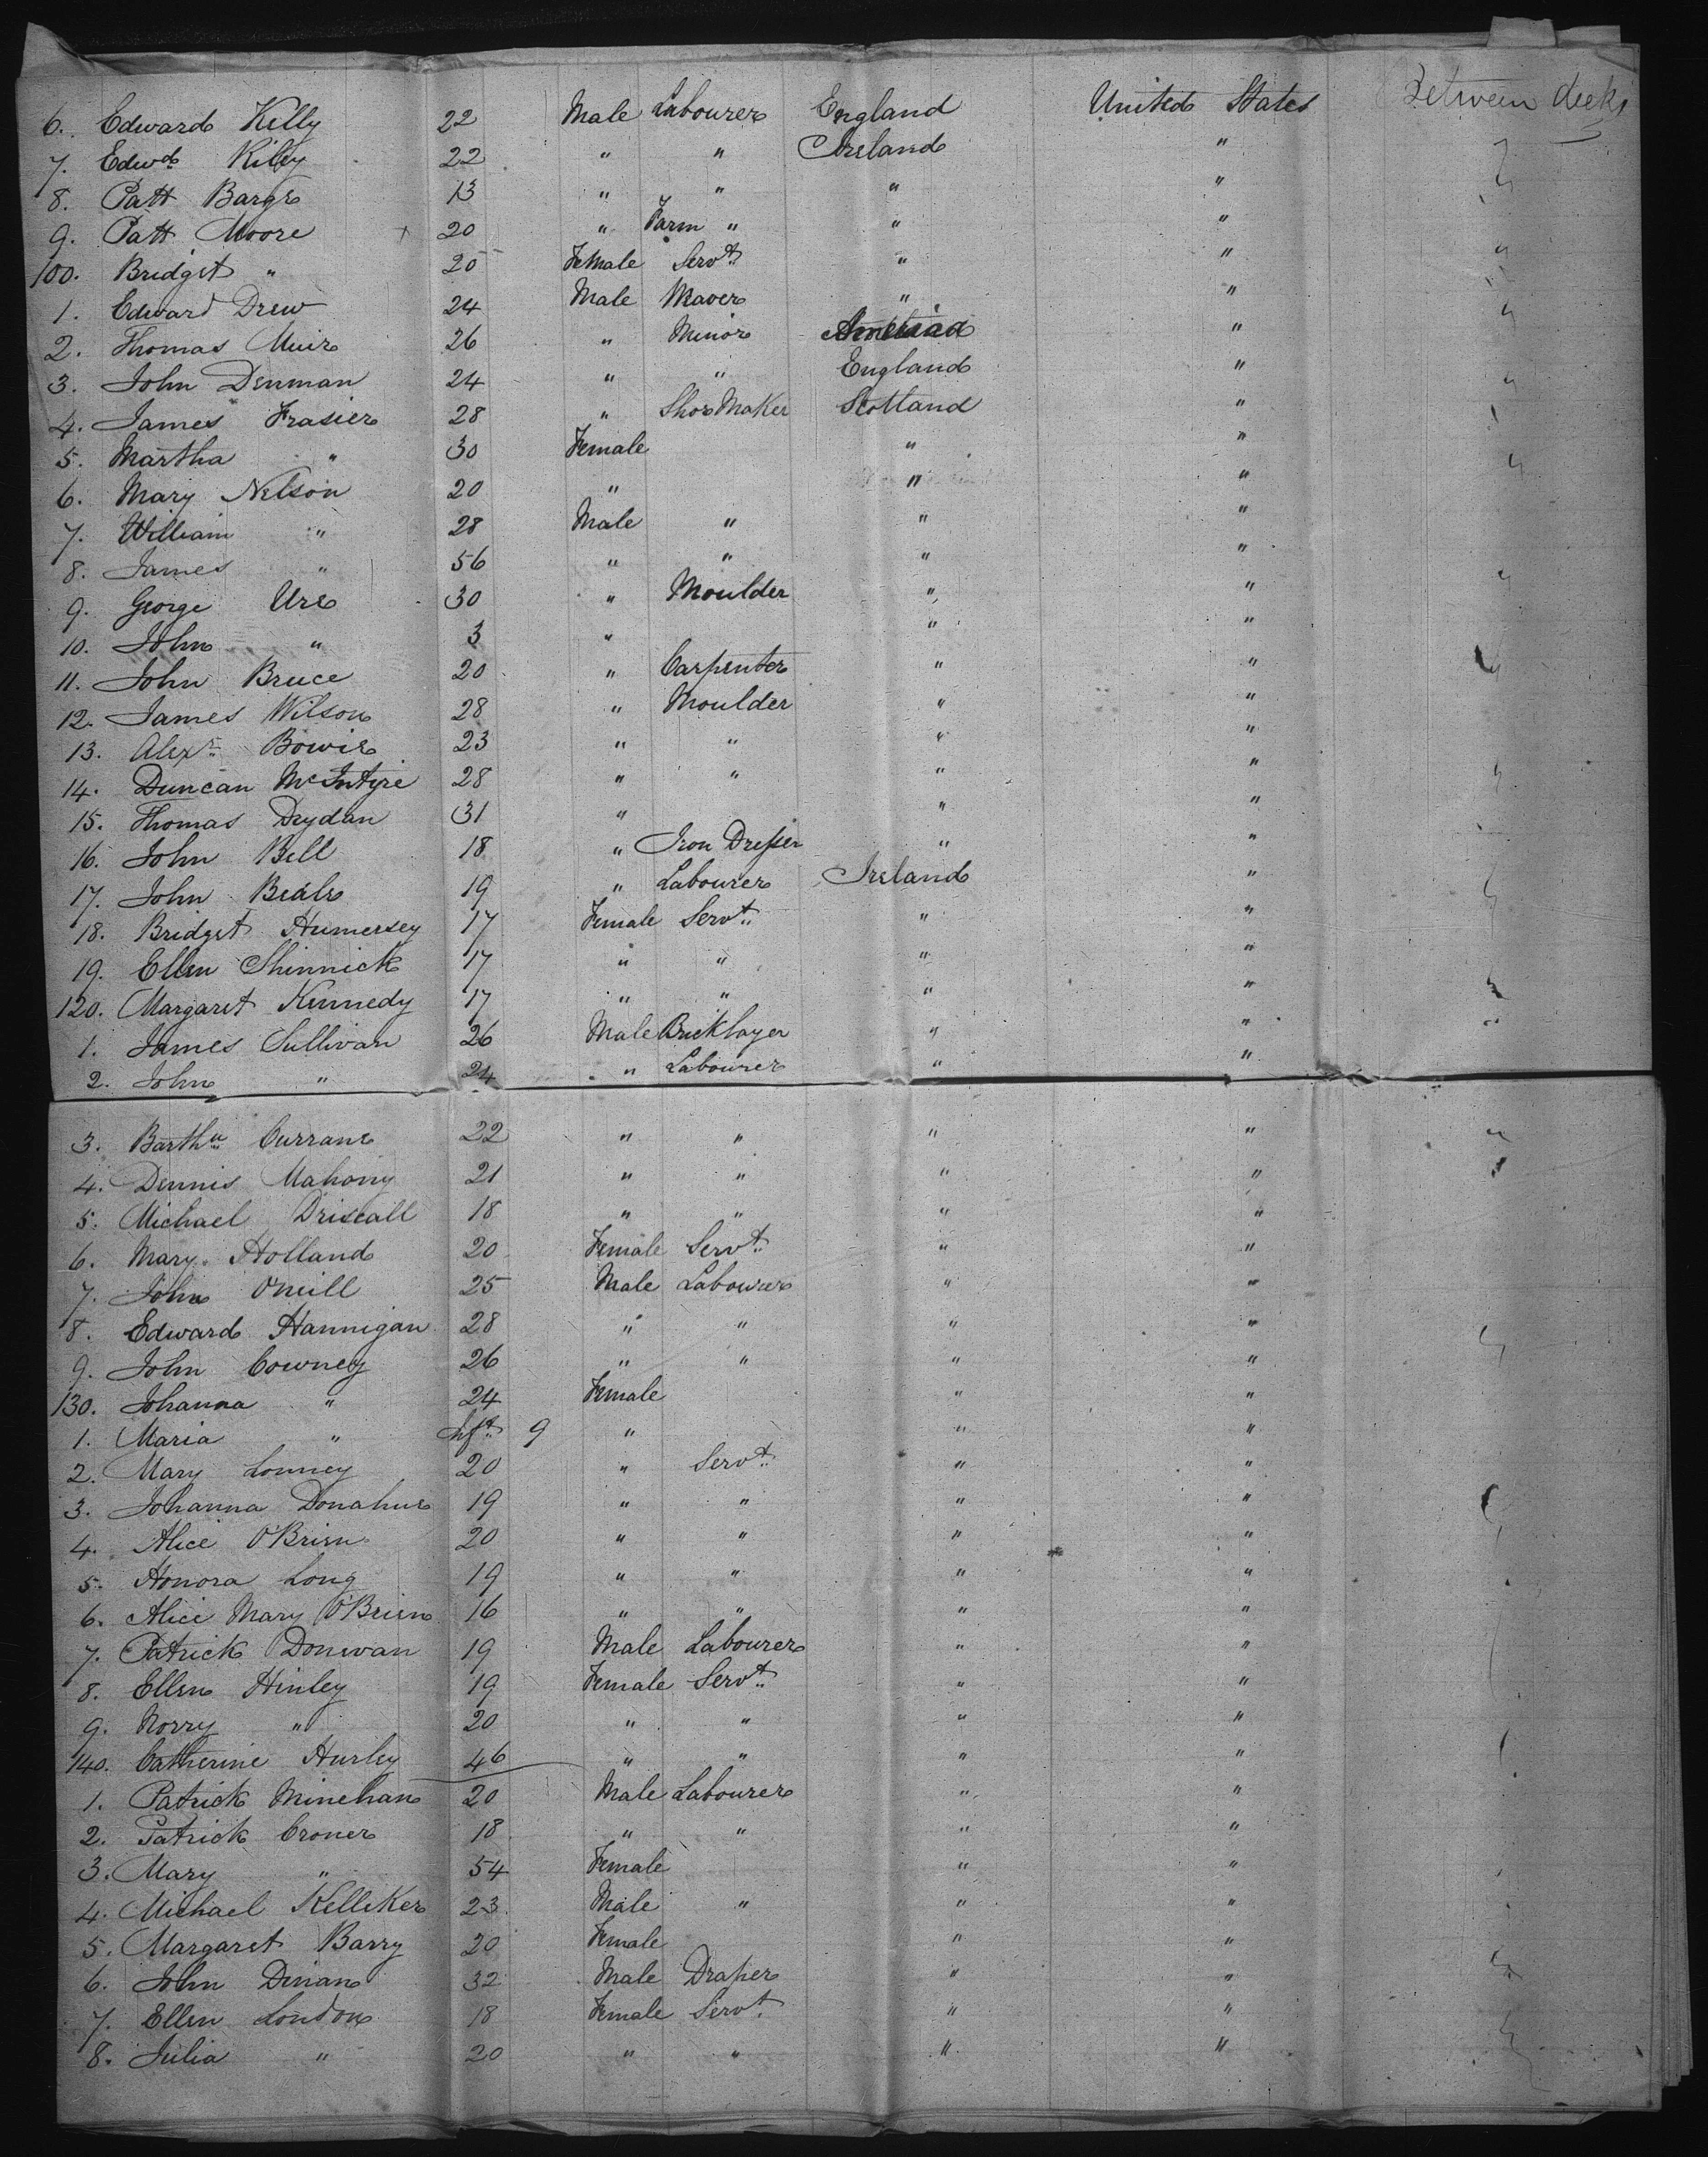 6. Edward Kelly 22 Male Labourer England United States Between decks
7. Edwd. Kiley 22 " " Ireland "
8. Patt Barge 13 " " " " "
9. Patt Moore 20 " Farm " " "
100. Bridget " 20 Female Servt. " " "
1. Edward Drew 24 Male Weaver " " "
2. Thomas Muir 26 " Minor "
3. John Denman 24 " " England " "
4. James Frasier 28 " Shoe Maker Scotland "
5. Martha " 30 Female " " "
6. Mary Nelson 20 " " "
7. William " 28 Male " " "
8. James " 56 " " " "
9. George Ure 30 " Moulder " " "
10. John " 3 " " "
11. John Bruce 20 " Carpenter " " "
12. James Wilson 28 " Moulder " "
13. Alexr. Bowie 23 " " " "
14. Duncan McIntyre 28 " " " " "
15. Thomas Drydan 31 " " "
16. John Bell 18 " Iron Dresser " "
17. John Beale 19 " Labourer Ireland "
18. Bridget Humersey 17 Female Servt. " "
19. Ellen Shinnick 17 " " " "
120. Margaret Kennedy 17 " " " " "
1. James Sullivan 26 Male Bricklayer " " "
2. John " 24 " Labourer " "
3. Barthw. Currane 22 " " " " "
4. Dennis Mahony 21 " " " " "
5. Michael Driscall 18 " " " "
6. Mary Holland 20 Female Servt. " "
7. John O'Neill 25 Male Labourer " "
8. Edward Hannigan 28 " " " "
9. John Cowney 26 " " " "
130. Johanna " 24 Female " "
1. Maria " Inft. 9 " " "
2. Mary Lonney 20 " Servt. " "
3. Johanna Donahue 19 " " " "
4. Alice O'Brien 20 " " " "
5. Honora Long 19 " " " "
6. Alice Mary O'Brien 16 " " " "
7. Patrick Donevan 19 Male Labourer " "
8. Ellen Hinley 19 Female Servt. " "
9. Norry " 20 " " " "
140. Catherine Hurley 46 " " " "
1. Patrick Minehan 20 Male Labourer " "
2. Patrick Croner 18 " " " "
3. Mary " 54 Female " "
4. Michael Kelliker 23 Male " " "
5. Margaret Barry 20 Female " "
6. John Dinan 32 Male Draper " "
7. Ellen London 18 Female Servt. " "
8. Julia " 20 " " " "